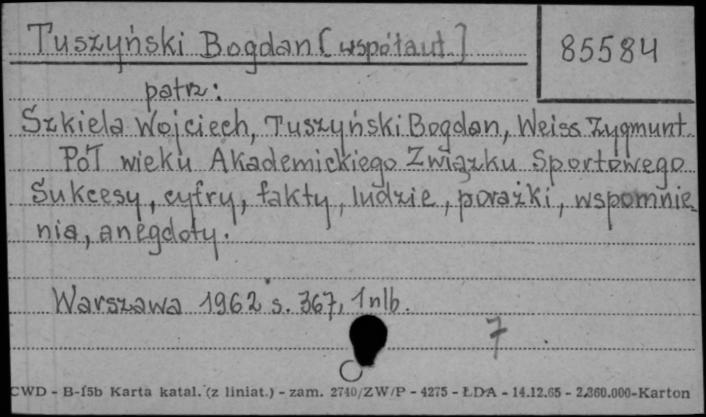 Tuszyński Bogdan [współaut.]
85584
patrz:
Szkiela Wojciech, Tuszyński Bogdan, Weiss Zygmunt
Pół wieku Akademickiego Związku Sportowego
Sukcesy, cyfry, fakty, ludzie, porażki, wspomnie-
nia, anegdoty.
Warszawa 1962 s. 367, 1 nlb.
7
CWD - B-15b Karta katal. (z liniat.) - zam. 2740/ZW/P - 4275 - ŁDA - 14.12.65 - 2.360.000-Karton